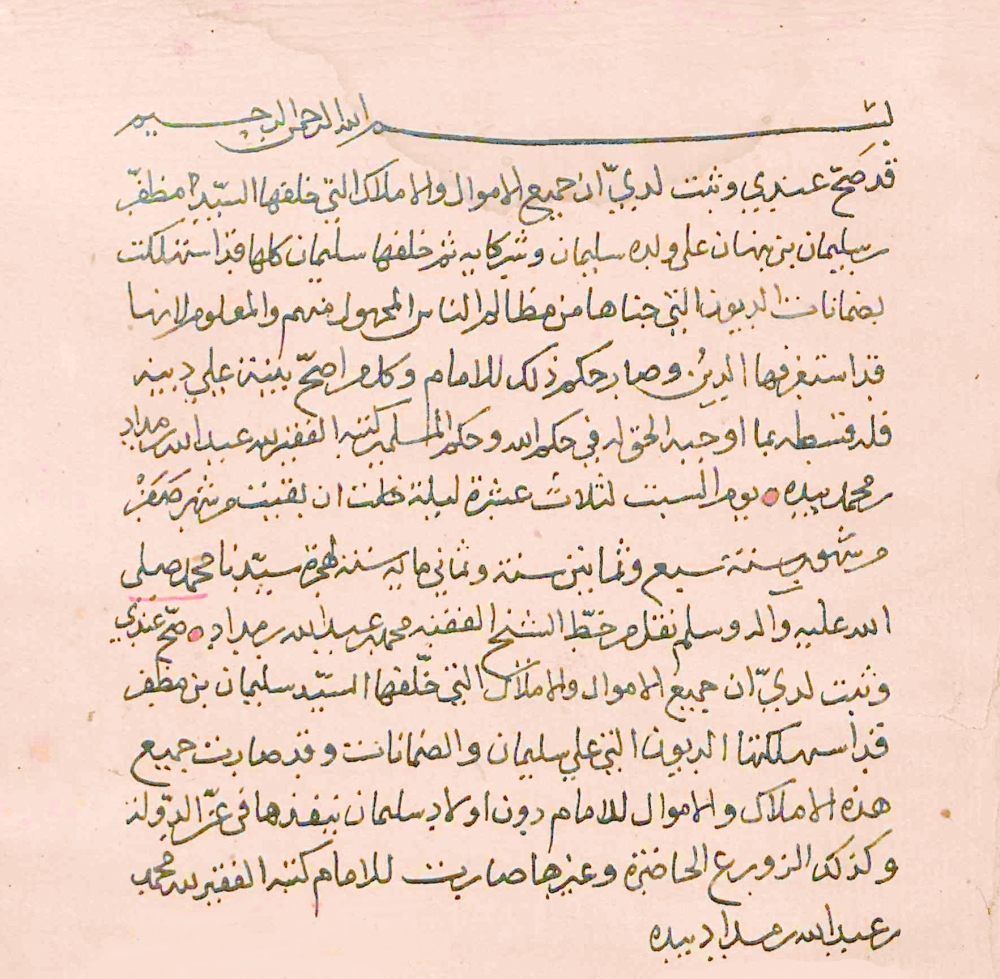 بسم الله الرحمن الرحيم
قد صحّ عندي وثبت لديّ ان جميع الاموال والاملاك التي خلفها السيّد مظفّر
بن سليمان بن نبهان على ولده سليمان وشركايه ثم خلفها سليمان كلها قد استهلكت
بضمانات الديون التي جناها من مظالم الناس المجهول منهم والمعلوم لانها
قد استغرقها الدين وصار حكم ذلك للامام وكل من اصحّ بيّنة على دينه
فله قسطه بما اوجبه الحق له في حكم الله وحكم المسلمين كتبه الفقير لله عبدالله بن مداد
بن محمد بيده يوم السبت لثلاث عشرة ليلة خلت ان بقيت من شهر صفر
من شهور سنة سبع وثمانين سنة وثماني ماية سنة لهجرة سيّدنا محمد صلى
الله عليه واله وسلم نقل من خطّ الشيخ الفقيه محمد بن عبدالله بن مداد صحّ عندي
وثبت لديّ ان جميع الاموال والاملاك التي خلّفها السيّد سليمان بن مظفر
قد استهلكتها الديون التي على سليمان والضمانات وقد صارت جميع
هذه الاملاك والاموال للامام دون اولاد سليمان ينفذها في عزّ الدولة
وكذلك الزورع الحاضرة وغيرها صارت للامام كتبه الفقير لله محمد
بن عبدالله بن مداد بيده